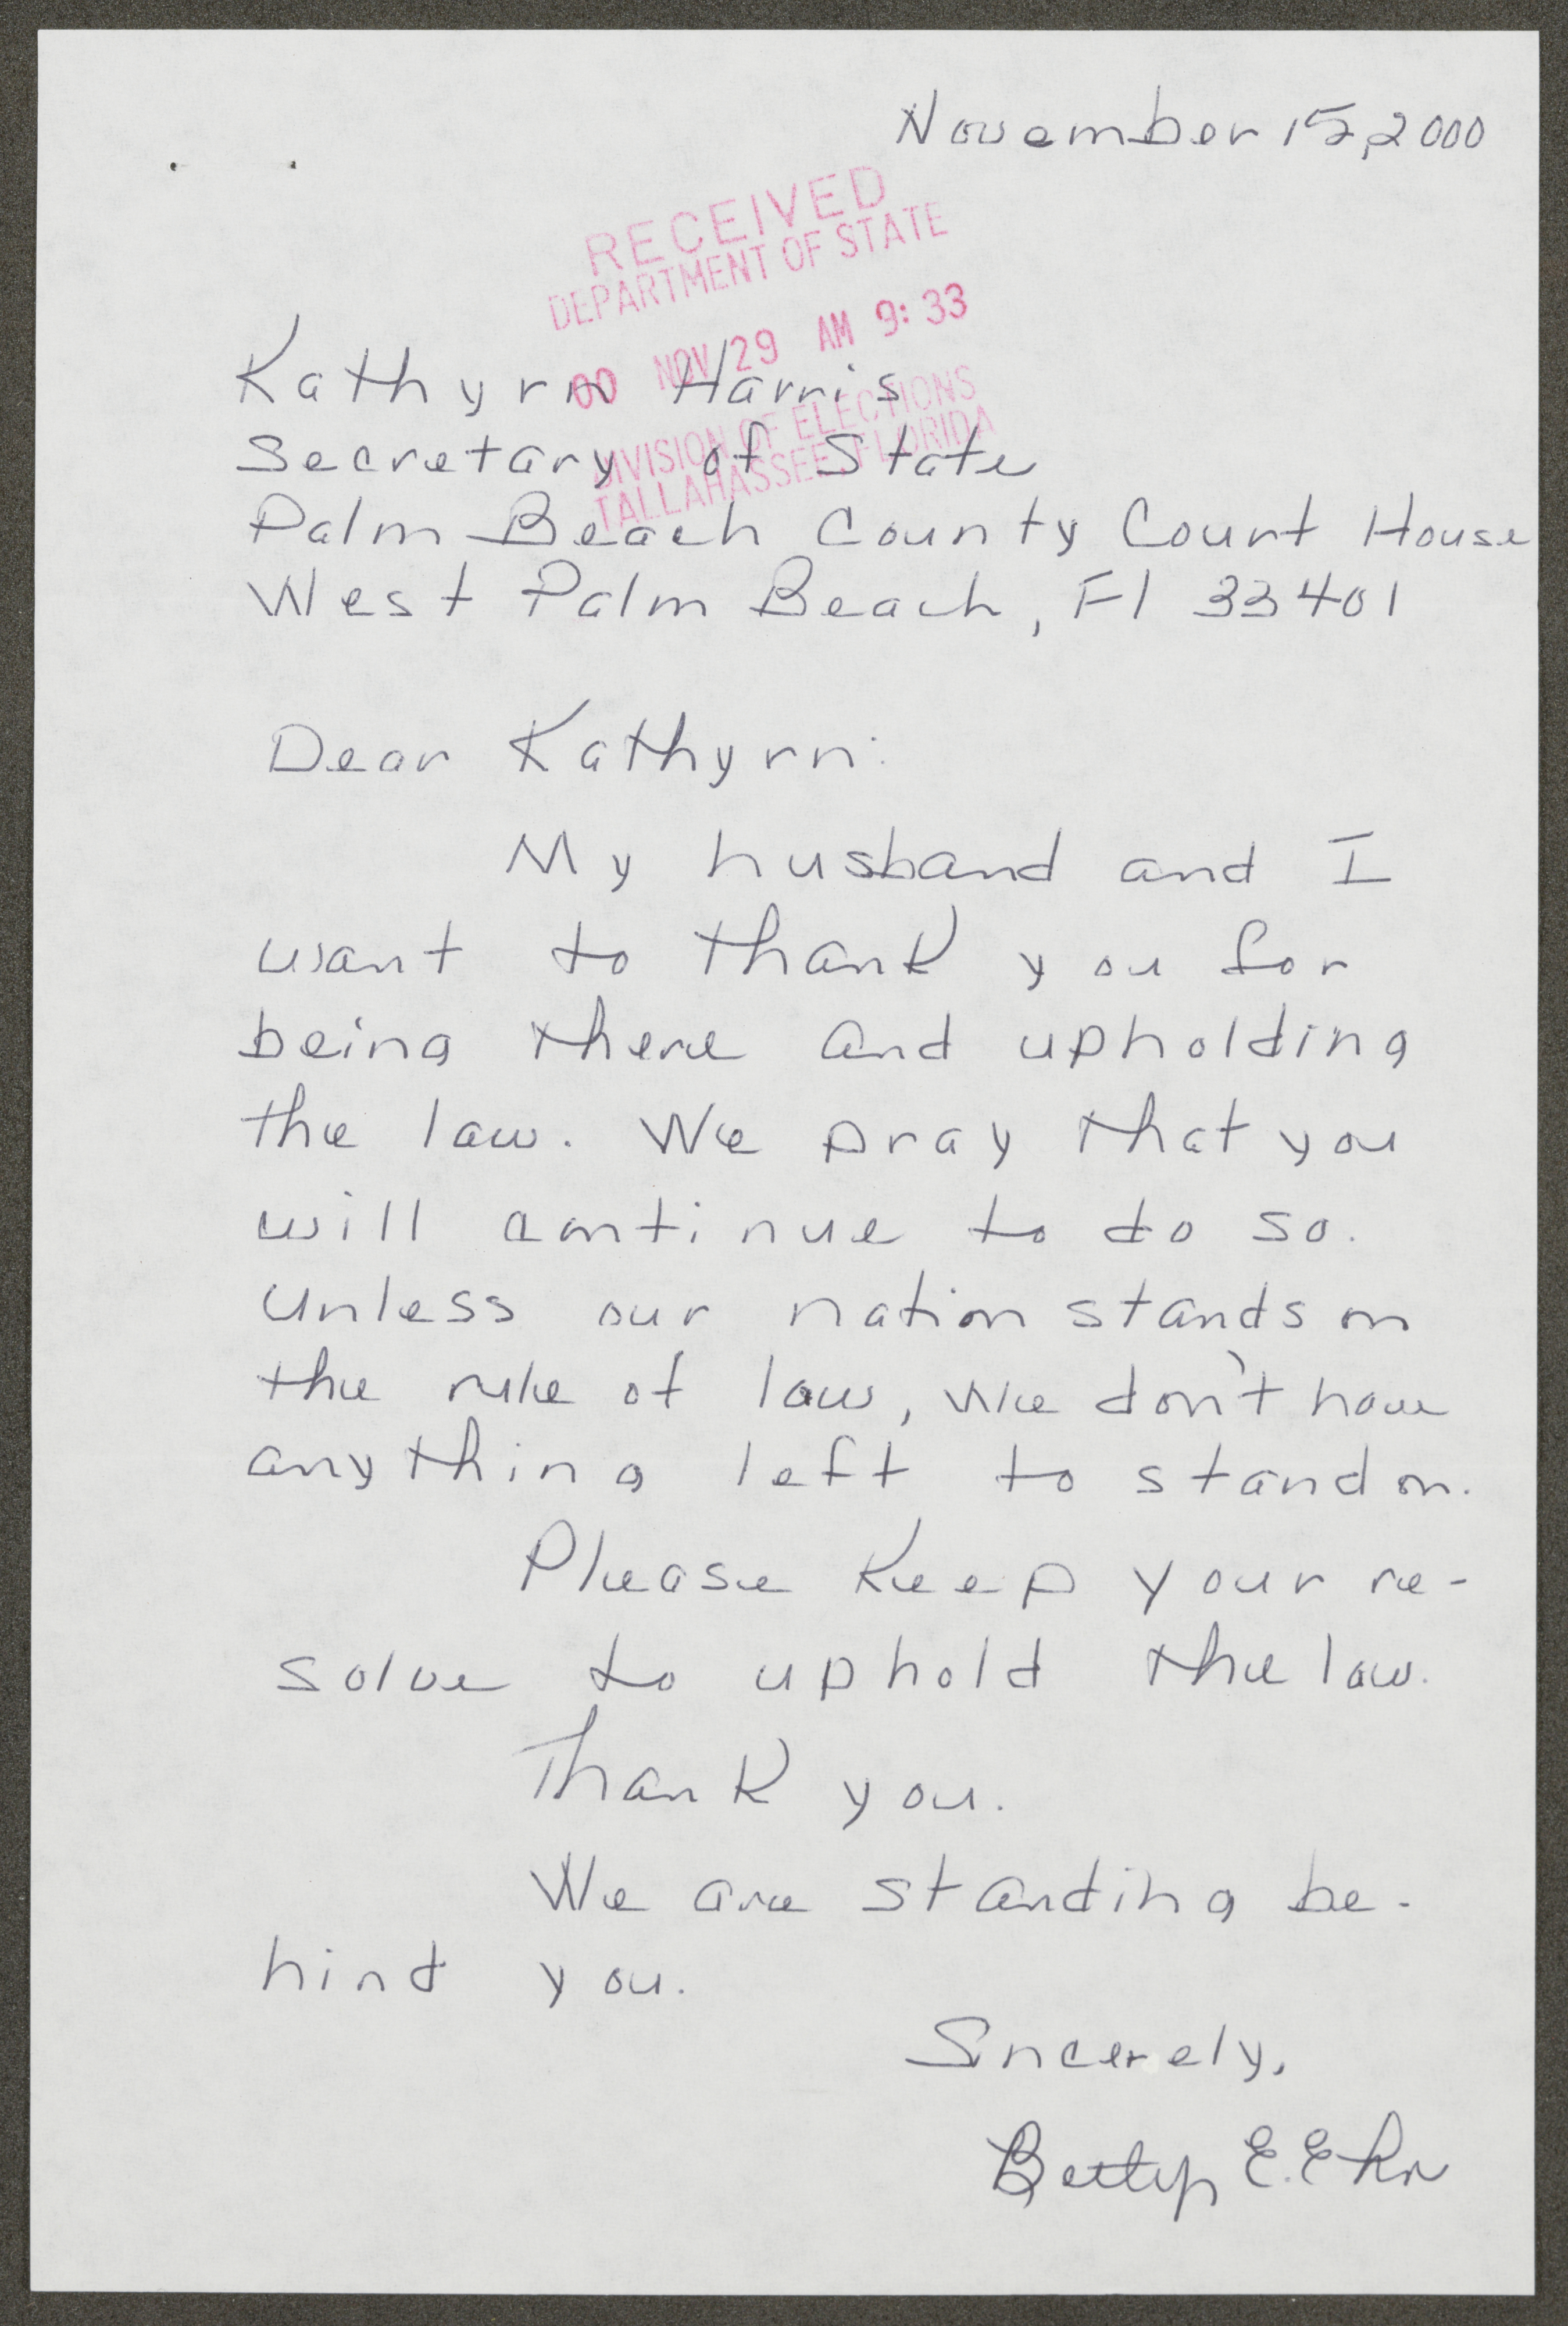 November 15, 2000
RECEIVED
DEPARTMENT OF STATE
00 NOV 29 AM 9:33
DIVISION OF ELECTIONS
TALLAHASSEE, FLORIDA
Kathyrn Harris
Secretary of State
Palm Beach County Court House
West Palm Beach, Fl 33401
Dear Kathyrn:
My husband and I
want to thank you for
being there and upholding
the law. We pray that you
will continue to do so.
Unless our nation stands on
the rule of law, we don't have
anything left to stand on.
Please keep your re-
solve to uphold the law.
Thank you.
We are standing be-
hind you.
Sincerely,
Betty E.